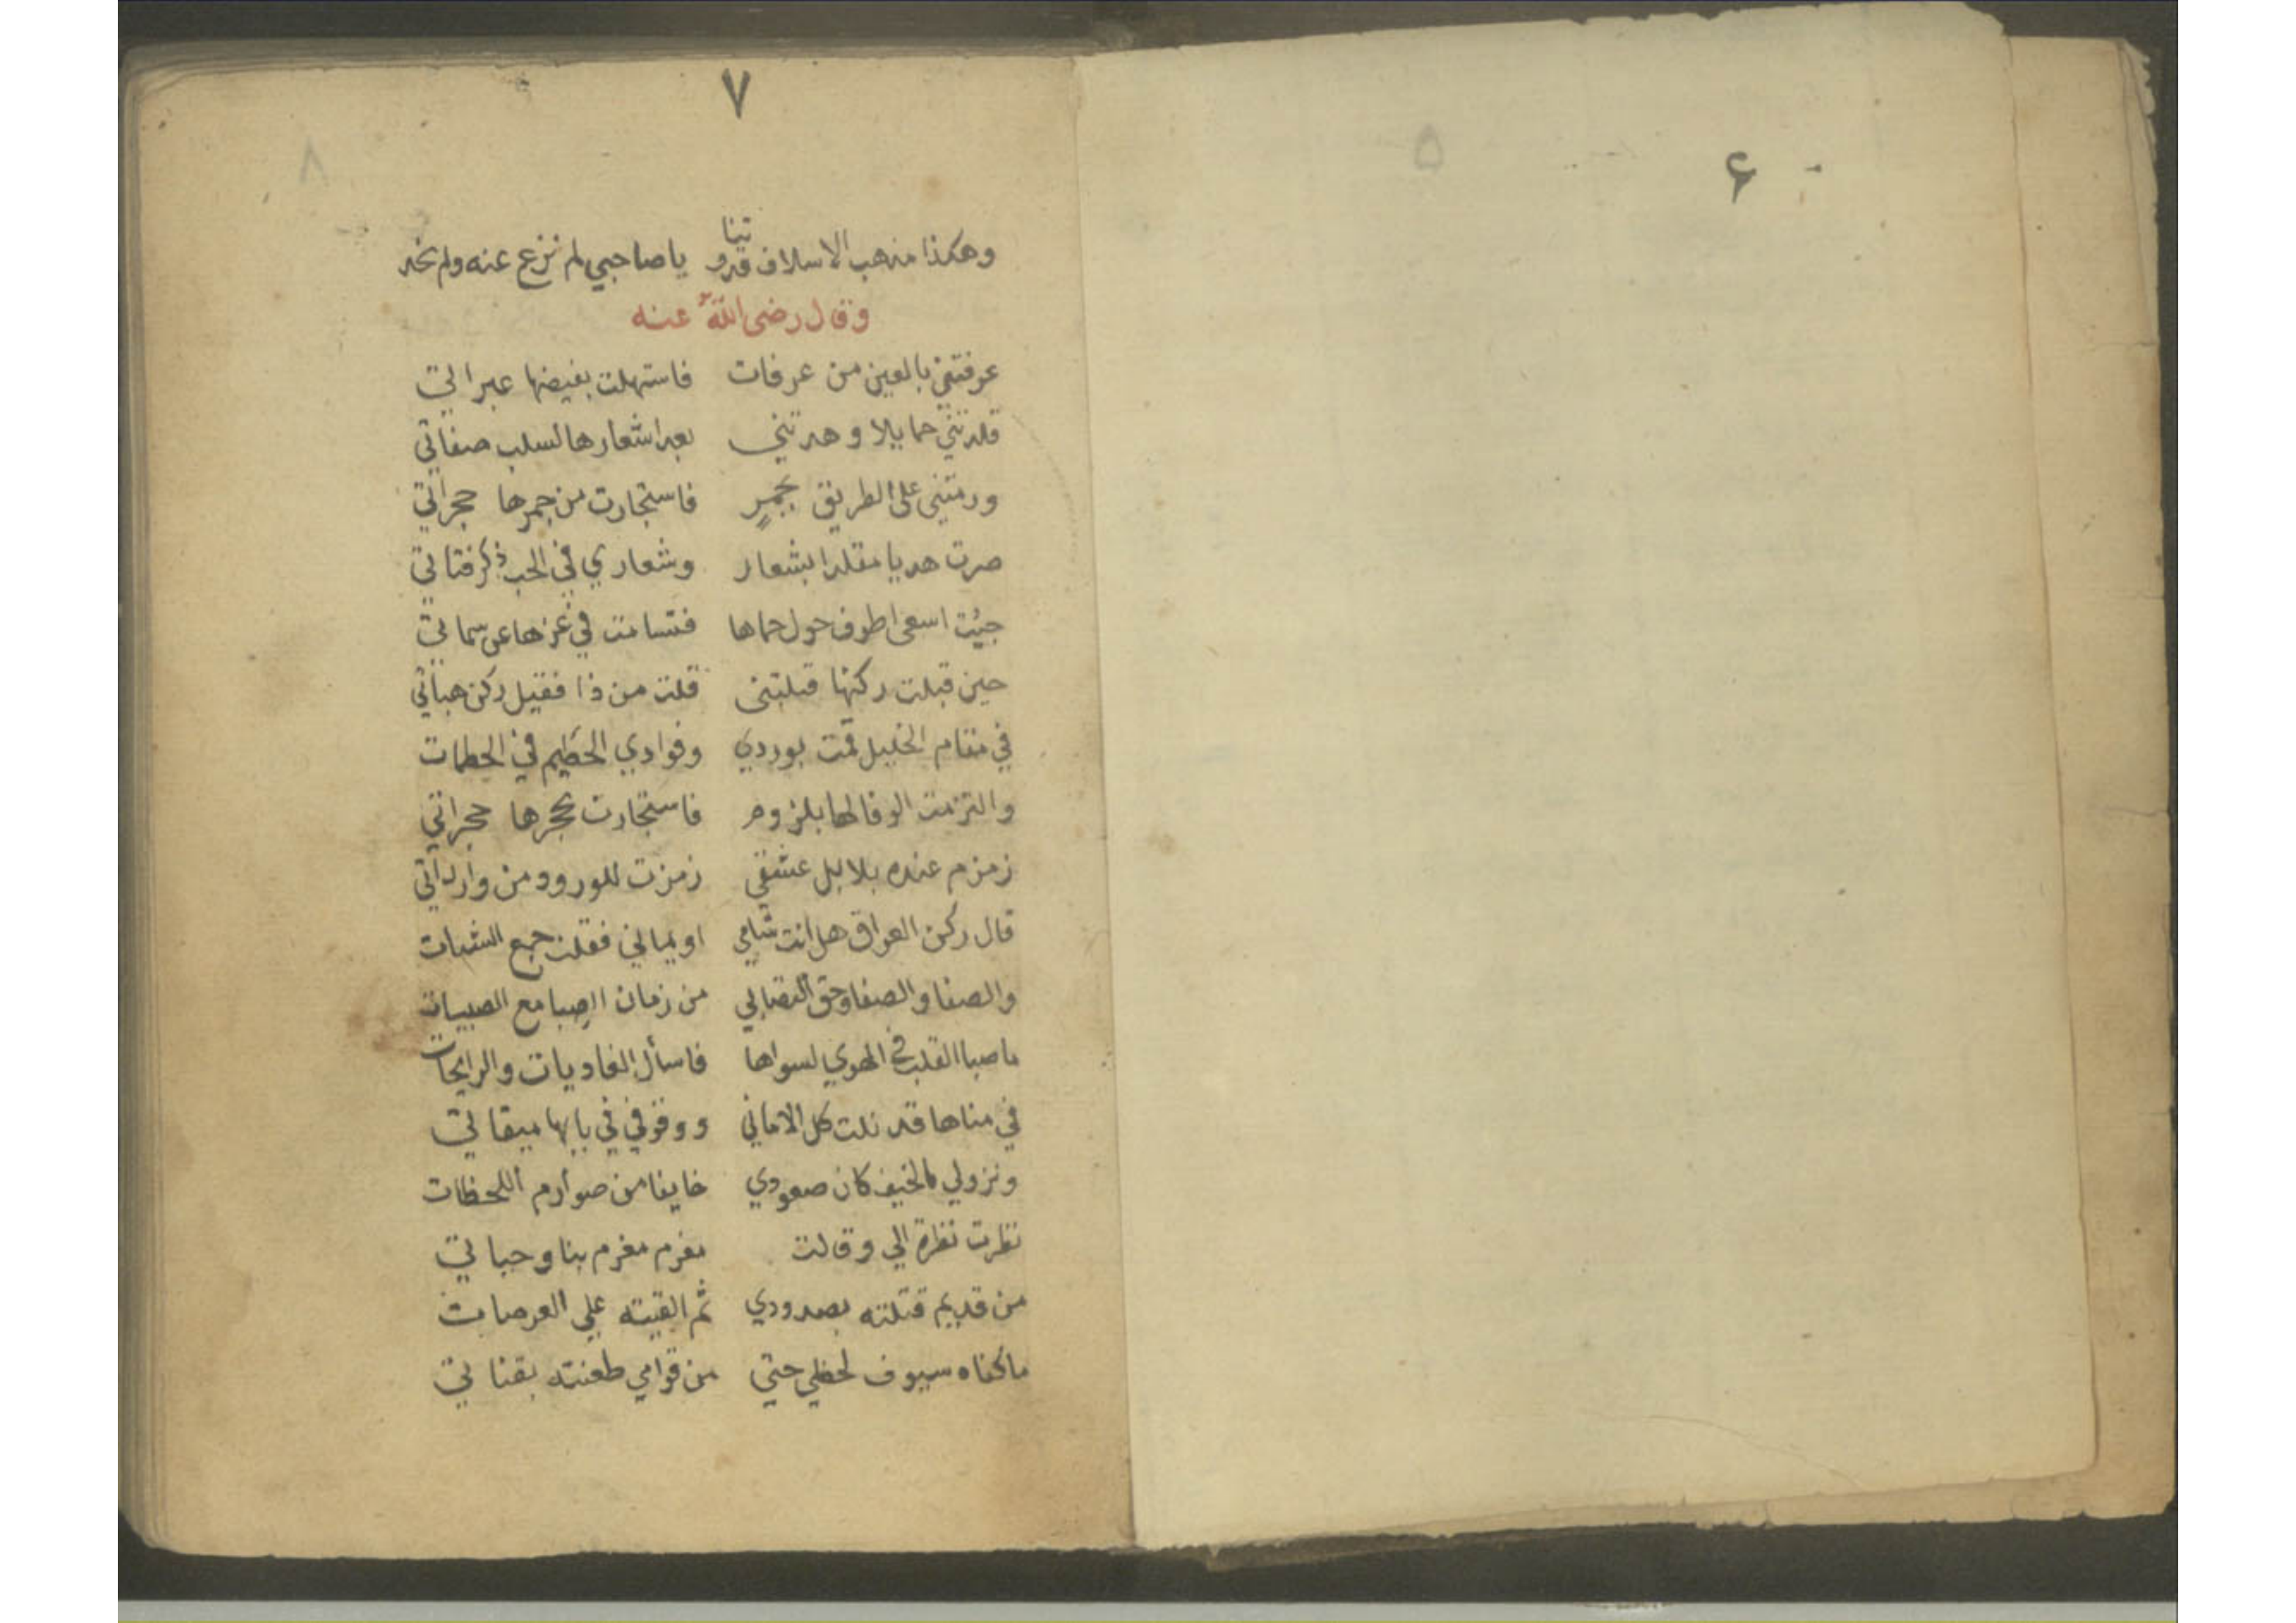 ۶
۵
۷
۸
وهكذا مذهب الاسلاف قدوتنا ياصاحبي لم نزع عنه ولم نحد
وقال رضى الله عنه
عرفتني بالعين من عرفات فاستهلت بفيضها عبراتي
قلدتني حمايلا وهدتني بعد اشعارها لسلب صفاتي
ورمتني على الطريق بجمرٍ فاستجارت من جمرها حجراتي
صرت هديا مقلدا بشعار وشعاري في الحب ذكر فتاتي
جيئت اسعى اطوف حول حماها فتسامت في عزها عن سماتي
حين قبلت ركنها قبلتنى قلت من ذا فقيل ركن هباتي
في مقام الخليل قمت بوردي وفوادي الحطيم في الحطمات
والتزمت الوفا لها بلزوم فاستجارت بحجرها حجراتي
زمزم عنده بلابل عشقي زمزت للورود من وارداتي
قال ركن العراق هل انت شامي او يماني فقلت جمع الشتات
والصفا والصفا وحق التصابي من زمان الصِبا مع الصبيات
ما صبا القلب في الهوي لسواها فاسأل الغاديات والرايحات
في مناها قد نلت كل الاماني ووقوفي في بابها ميقاتي
ونزولي بالخيف كان صعودي خايفا من صوارم اللحظات
نظرت نظرة الي وقالت مغرم مغرم بنا وحياتي
من قديم قتلته بصدودي ثم القيته علي العرصات
ماكفاه سيوف لحظي حتي من قوامي طعنته بقناتي